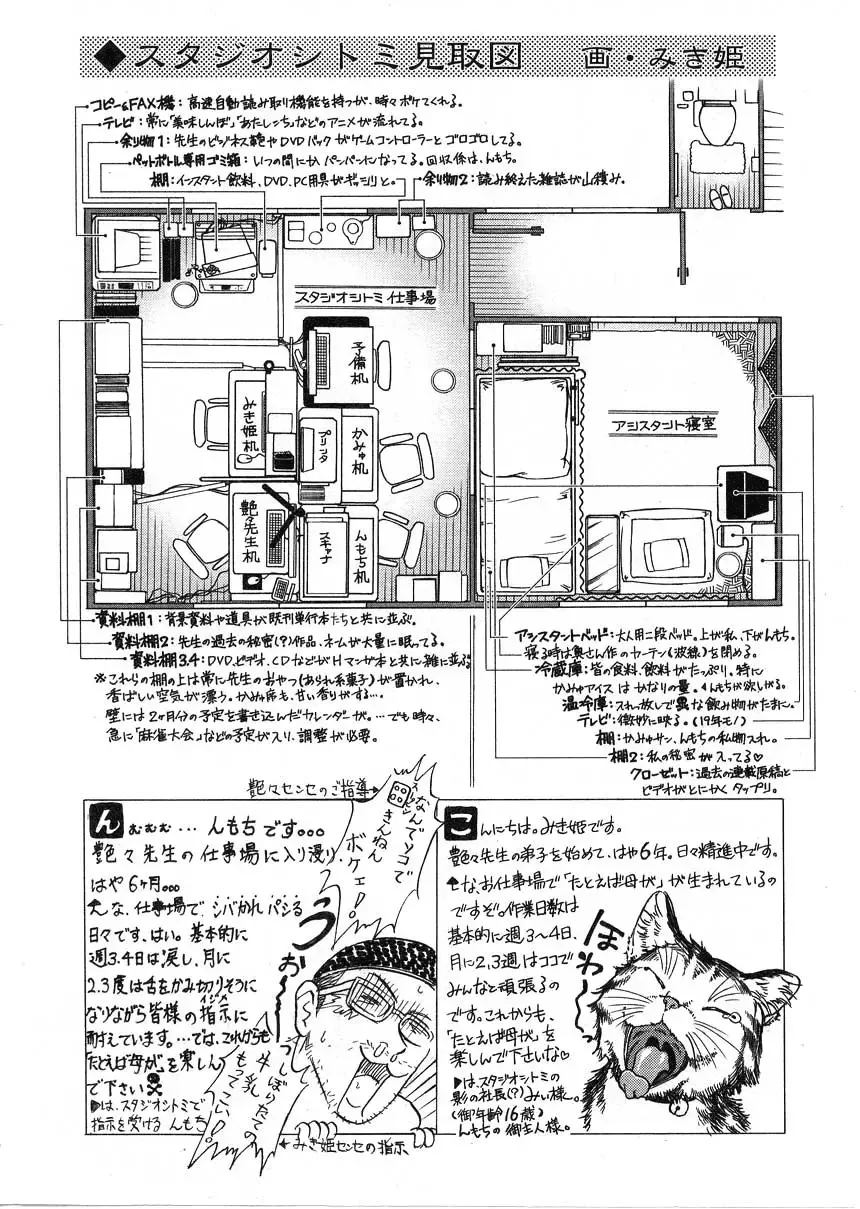 ◆スタジオシトミ見取図　画・みき姫
コピー&FAX機：高速自動読み取り機能を持つが、時々ボケてくれる。
テレビ：常に「美味しんぼ」「あたしンち」などのアニメが流れてる。
余り物1：先生のビジネス鞄やDVDパックがゲームコントローラーとゴロゴロしてる。
ペットボトル専用ゴミ箱：いつの間にかパンパンになってる。回収係は、んもち。
棚：インスタント飲料、DVD、PC用具がギッシリと。
余り物2：読み終えた雑誌が山積み。
スタジオシトミ仕事場
予備机
みき姫机
プリンタ
かみゅ机
艶々先生机
スキャナ
んもち机
アシスタント寝室
資料棚1：背景資料や道具が既刊単行本たちと共に並ぶ。
資料棚2：先生の過去の秘密(?)作品、ネームが大量に眠ってる。
資料棚3.4：DVD、ビデオ、CDなどがHマンガ本と共に雑に並ぶ。
※これらの棚の上は常に先生のおやつ(あられ系菓子)が置かれ、
香ばしい空気が漂う。かみゅ席も、甘い香りがする…。
壁には2ヶ月分の予定を書き込んだカレンダーが。…でも時々、
急に「麻雀大会」などの予定が入り、調整が必要。
アシスタントベッド：大人用二段ベッド。上が私、下がんもち。
寝る時は奥さん作のカーテン(波線)を閉める。
冷蔵庫：皆の食料、飲料がたっぷり。特に
かみゅアイスはかなりの量。んもちが欲しがる。
温冷庫：スイッチ放しで異な飲み物がたまに。
テレビ：微妙に映る。(19年モノ)
棚：かみゅサン、んもちの私物入れ。
棚2：私の秘密が入ってる♡
クローゼット：過去の連載原稿と
ビデオがとにかくタップリ。
艶々センセのご指導→
なんでソコで
きんねん
ボケェ!
ん むむむ…んもちです。。。
艶々先生の仕事場に入り浸り、
はや6ヶ月。。。
んな、仕事場でシバかれパシる
日々です、はい。基本的に
週3.4日は戻し、月に
2.3度は舌をかみ切りそうに
なりながら皆様の指示(イジメ)に
耐えています。…では、これからも
「たとえば母が」を楽しんで
下さい☠
▶は、スタジオシトミで
指示を受けるんもち
うおー
しぼりたての
牛乳
もってこい!
←みき姫センセの指示
こんにちは。みき姫です。
艶々先生の弟子を始めて、はや6年。日々精進中です。
そんな、お仕事場で「たとえば母が」が生まれているの
ですぞ。作業日数は
基本的に週3〜4日、
月に2,3週はココで
みんなと頑張るの
です。これからも、
「たとえば母が」を
楽しんで下さいな♡
▶は、スタジオシトミの
影の社長(?)みぃ様。
(御年齢16歳)
んもちの御主人様。
ほわ〜っ